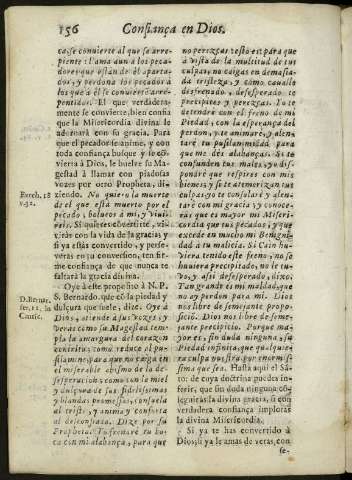 156 Confiança en Dios.
ca se convierte al que se arre-
piente: l'ama aun a los peca-
dores que estàn de èl aparta-
dos, y perdona los pecados à
los que à èl se conviertē arre-
pentidos. El que verdadera-
mente se convierte, bien confia
que la Misericordia divina le
adornarà con su gracia. Para
que el pecador se anime, y con
toda confiança busque y se cō-
vierta à Dios, le buelve su Ma-
gestad à llamar con piadosas
vozes por otro Propheta, di-
Ezech. 18
v. 32.
ziendo. No quiero la muerte
de el que està muerto por el
pecado, bolveos à mi, y vivi-
reis. Si quieres cōvertirte, vi-
viràs con la vida de la gracia; y
si ya estàs convertido, y perse-
veras en tu conversion, ten fir-
me confiança de que nunca te
faltarà la gracia divina.
Oye à este proposito à N. P.
D. Bernar.
ser. 11. in
Cantic.
S. Bernardo, que cō la piedad y
dulçura que suele, dize. Oye à
Dios, atiende à sus vozes, y
veràs como su Magestad tem-
pla la amargura del coraçon
contrito; como reduce el pu-
silanime, para que no caiga en
el miserable abismo de la de-
sesperacion; como con la miel
y dulçura de sus fidelissimas
y blandas promessas, consuela
al triste, y anima y conforta
al desconfiado. Dize por su
Propheta: Tu enfrenarè tu bo-
ca con mi alabança, para que
no perezcas: esto es: para que
à vista de la multitud de tus
culpas, no caigas en demasia-
da tristeza, y como cavallo
desfrenado, desesperado te
precipites y perezcas. Yo te
detendrè con el freno de mi
Clemencia, con la esperança del
perdon, y te animarè, y alen-
tarè tu pusilanimidad para
que me des alabanças. Si te
confunden tus males, yo dis-
pondrè que respires en mis
bienes, y si te atemorizan tus
culpas, yo te consolarè y alen-
tarè con mi gracia; y conoce-
ràs que es mayor mi Miseri-
cordia que tus pecados, y que
excede en mucho mi Benigni-
dad à tu malicia. Si Caìn hu-
viera tenido este freno, no se
huviera precipitado, no le tu-
vo, y assi desesperado, dixo:
Tan grande es mi maldad, que
no ay perdon para mi. Dios
nos libre de semejante proposi-
ciō. Dios nos libre de seme-
jante precipicio. Porque ma-
yor es, sin duda ninguna, su
Piedad infinita, que qualquie-
ra culpa nuestra por enormis-
sima que sea. Hasta aqui el Sā-
to: de cuya doctrina puedes in-
ferir, que sin duda ninguna cō-
seguiràs la divina gracia, si con
verdadera confiança imploras
la divina Misericordia.
Si ya te has convertido à
Dios, si ya le amas de veras, con
se-